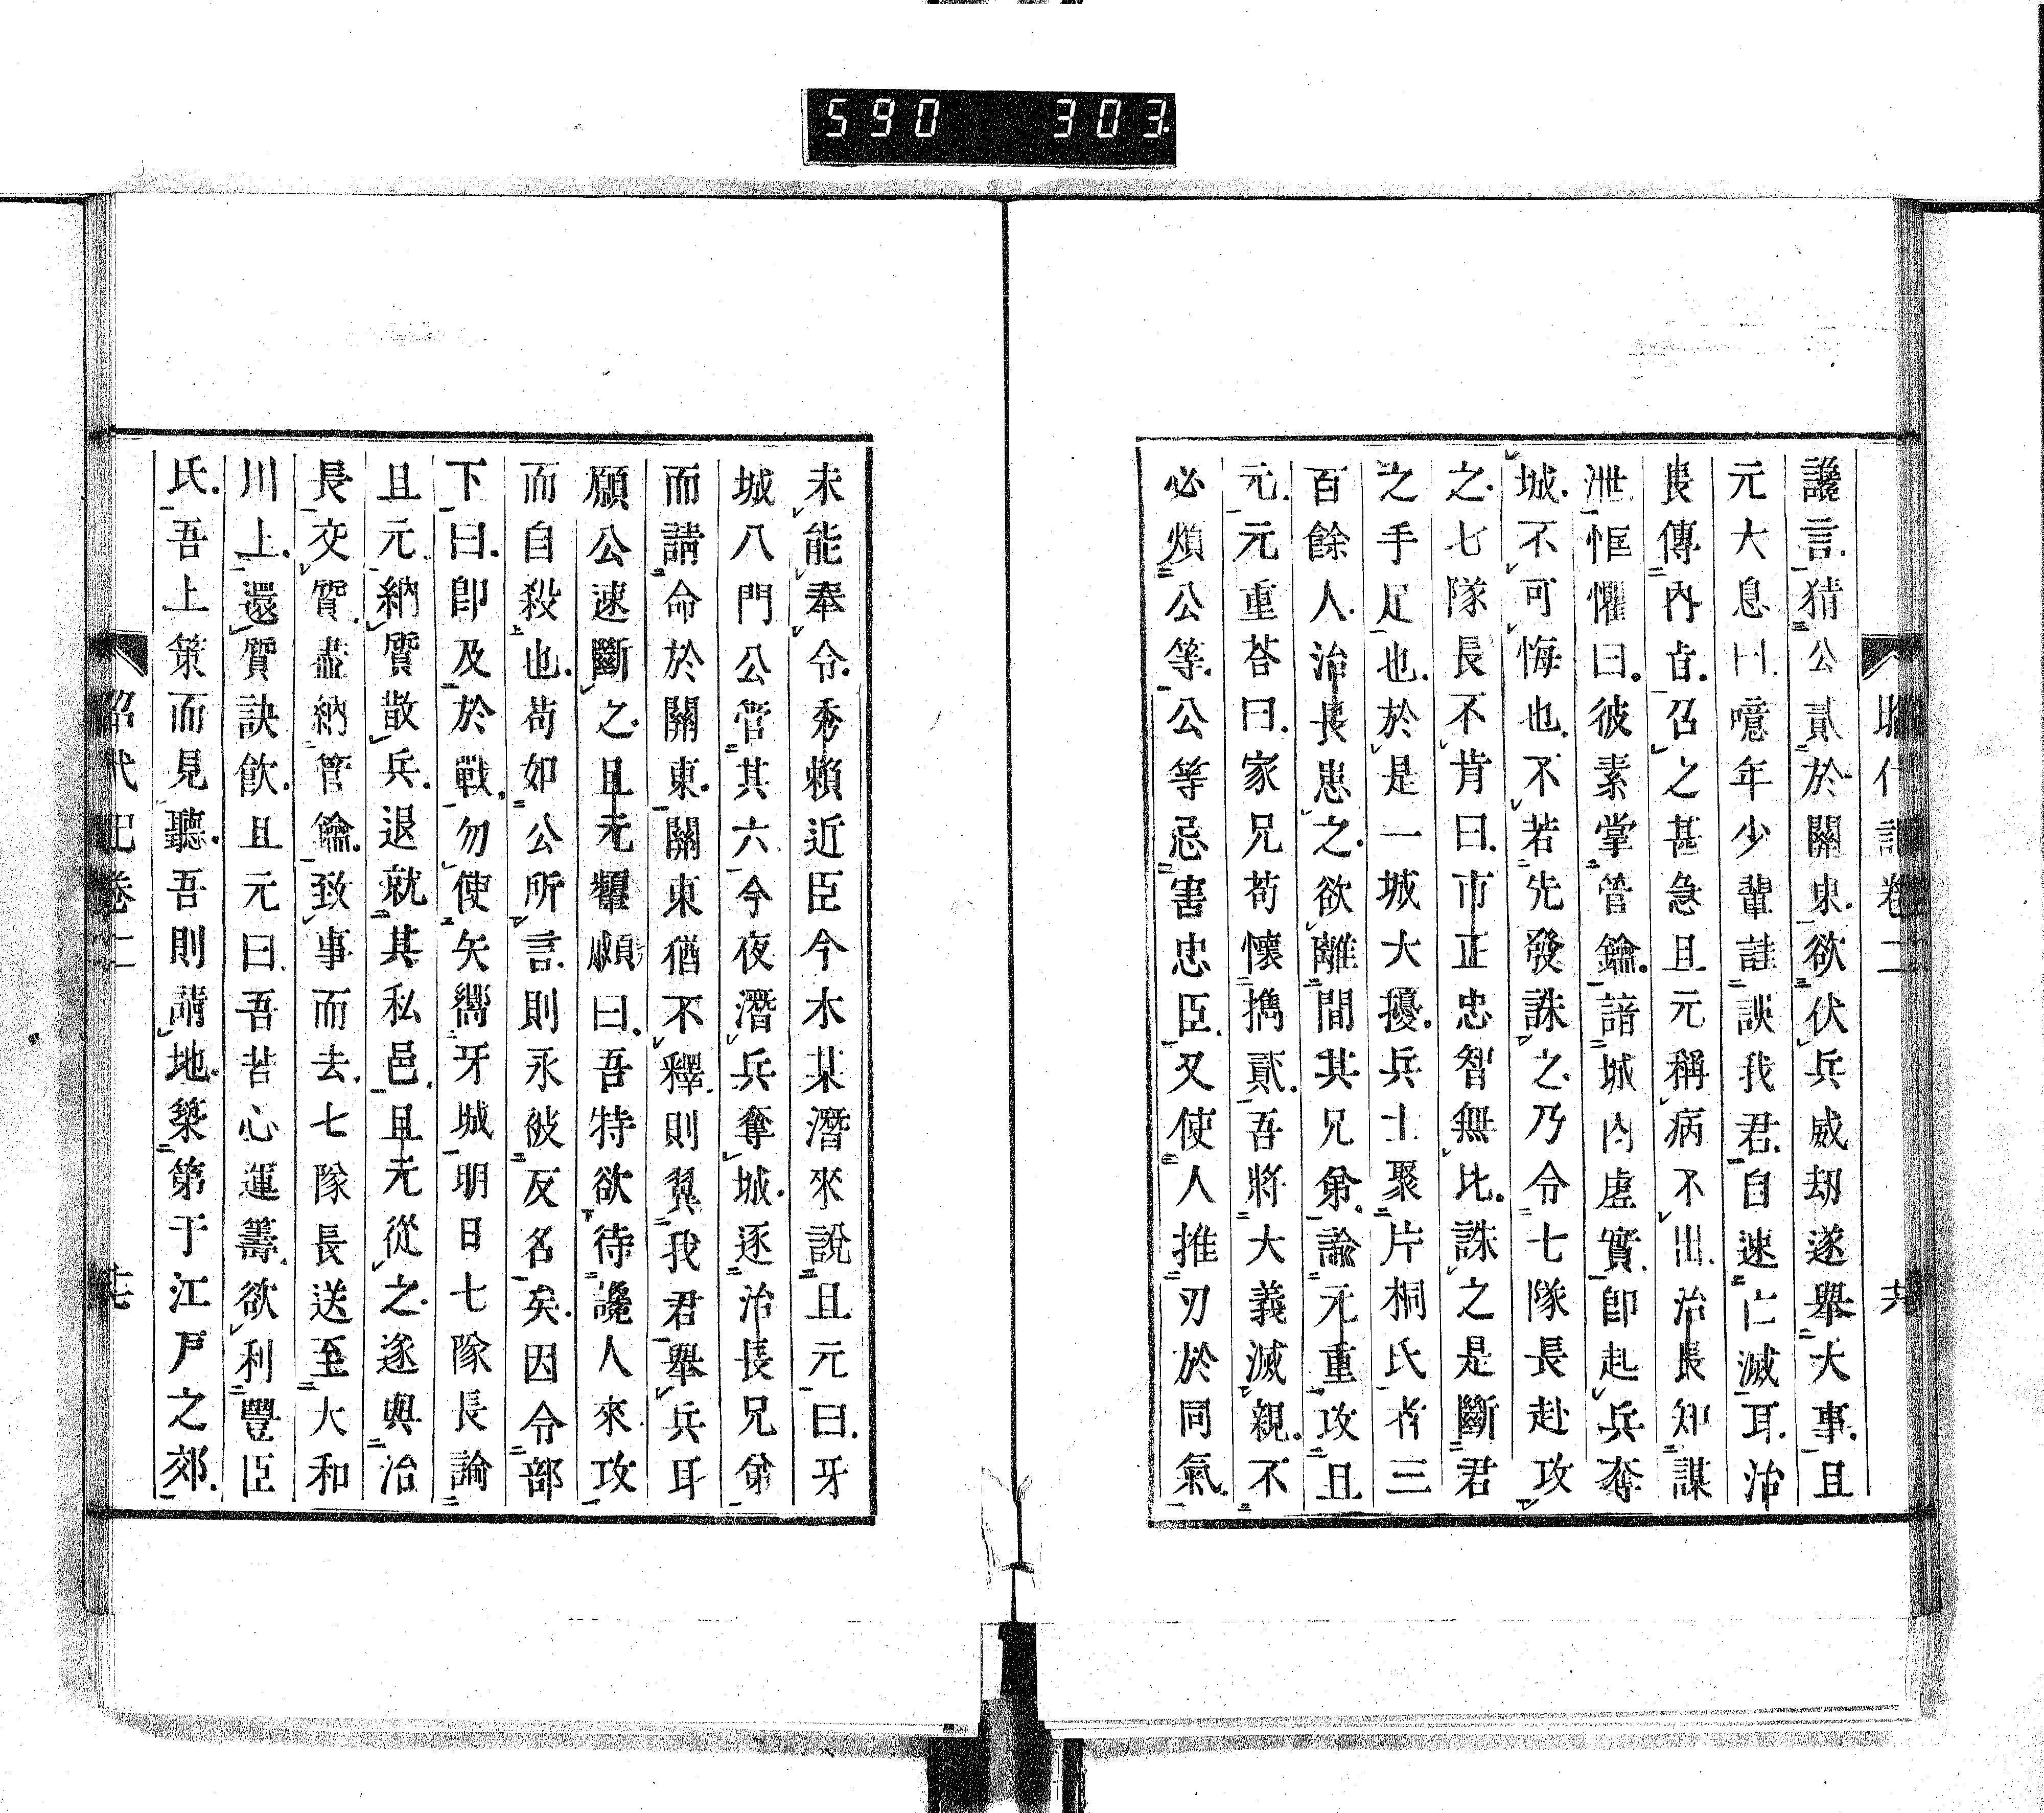 590 303
讒言猜公貳於關東欲伏兵威刧遂擧大事且
元大息曰噫年少輩詿誤我君自速亡滅耳治
長傳內旨召之甚急且元稱病不出治長知謀
泄恇懼曰彼素掌管鑰諳城內虛實卽起兵奪
城不可悔也不若先發誅之乃令七隊長赴攻
之七隊長不肯曰市正忠智無比誅之是斷君
之手足也於是一城大擾兵士聚片桐氏者三
百餘人治長患之欲離間其兄弟諭元重攻且
元元重荅曰家兄苟懷攜貳吾將大義滅親不
必煩公等公等忌害忠臣又使人推刃於同氣
未能奉令秀賴近臣今木某潛來說且元曰牙
城八門公管其六今夜潛兵奪城逐治長兄弟
而請命於關東關東猶不釋則翼我君擧兵耳
願公速斷之且元顰顣曰吾特欲待讒人來攻
而自殺也苟如公所言則永被反名矣因令部
下曰卽及於戰勿使矢嚮牙城明日七隊長諭
且元納質散兵退就其私邑且元從之遂與治
長交質盡納管鑰致事而去七隊長送至大和
川上還質訣飮且元曰吾苦心運籌欲利豐臣
氏吾上策而見聽吾則請地築第于江戶之郊
昭代記卷二